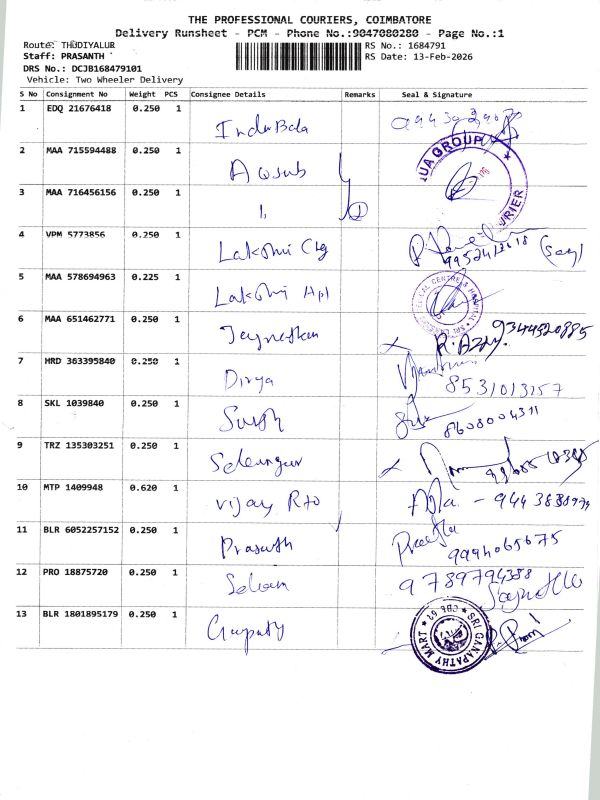 THE PROFESSIONAL COURIERS, COIMBATORE
Delivery Runsheet - PCM - Phone No.:9047080280 - Page No.:1
Route: THUDIYALUR
Staff: PRASANTH
DRS No.: DCJB168479101
Vehicle: Two Wheeler Delivery
RS No.: 1684791
RS Date: 13-Feb-2026
S No Consignment No Weight PCS Consignee Details Remarks Seal & Signature
1 EDQ 21676418 0.250 1 InduBala
2 MAA 715594488 0.250 1
3 MAA 716456156 0.250 1
4 VPM 5773856 0.250 1 Lakshmi Clg
5 MAA 578694963 0.225 1 Lakshmi Hpl
6 MAA 651462771 0.250 1 9344520885
7 HRD 363395840 0.250 1 Divya 8531013157
8 SKL 1039840 0.250 1 8608004311
9 TRZ 135303251 0.250 1
10 MTP 1409948 0.620 1 Vijay
11 BLR 6052257152 0.250 1 Prasanth 9994065675
12 PRO 18875720 0.250 1 Selvam 9789794388
13 BLR 1801895179 0.250 1 SRI GANAPATHY MART